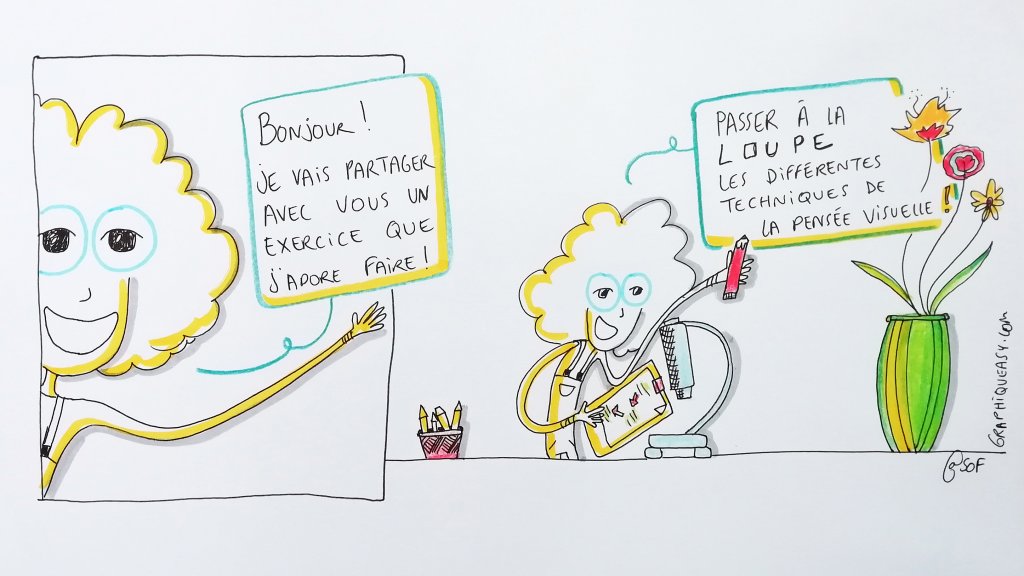 BONJOUR !
JE VAIS PARTAGER
AVEC VOUS UN
EXERCICE QUE
J'ADORE FAIRE !
PASSER À LA
LOUPE
LES DIFFÉRENTES
TECHNIQUES DE
LA PENSÉE VISUELLE !
GRAPHIQUEASY.com
SOF